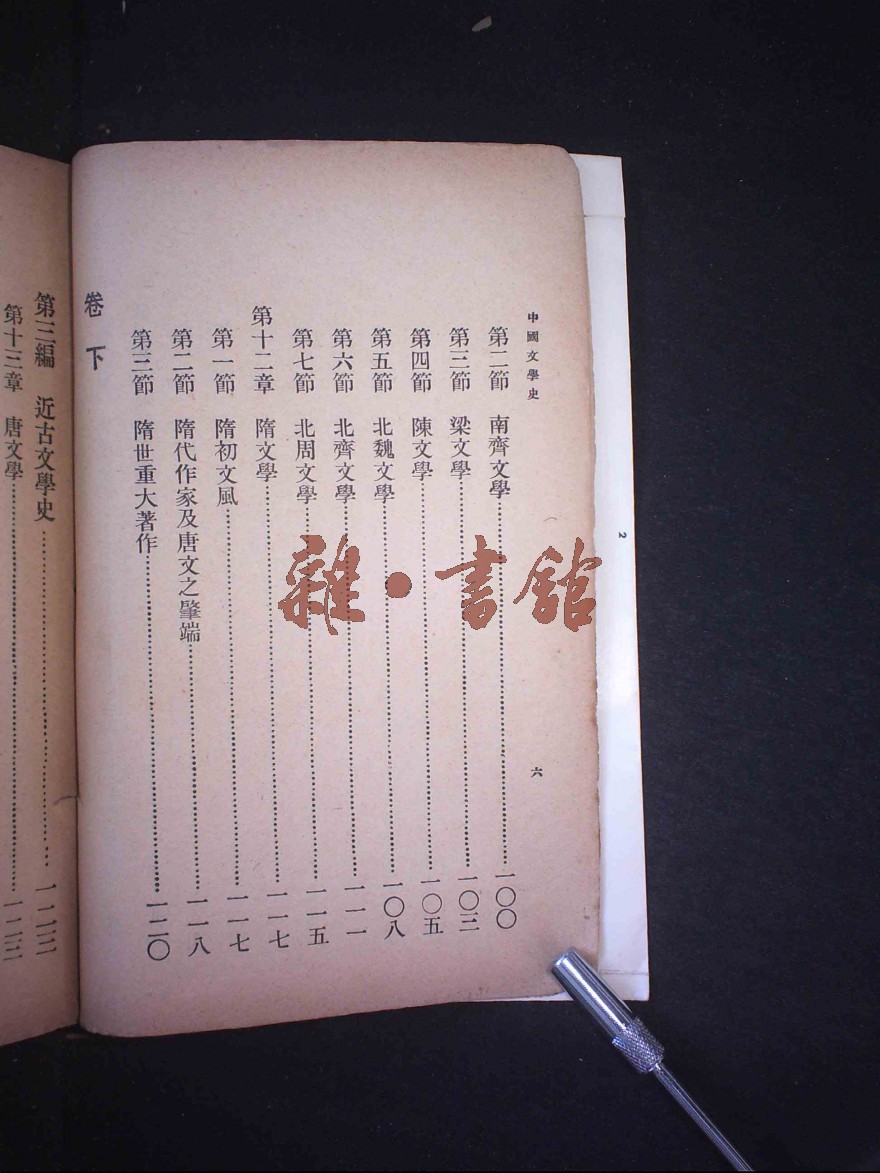 中國文學史
六
第二節　南齊文學⋯⋯一〇〇
第三節　梁文學⋯⋯一〇三
第四節　陳文學⋯⋯一〇五
第五節　北魏文學⋯⋯一〇八
第六節　北齊文學⋯⋯一一一
第七節　北周文學⋯⋯一一五
第十二章　隋文學⋯⋯一一七
第一節　隋初文風⋯⋯一一七
第二節　隋代作家及唐文之肇端⋯⋯一一八
第三節　隋世重大著作⋯⋯一二〇
卷下
第三編　近古文學史⋯⋯一二三
第十三章　唐文學⋯⋯一二三
2
雜·書館